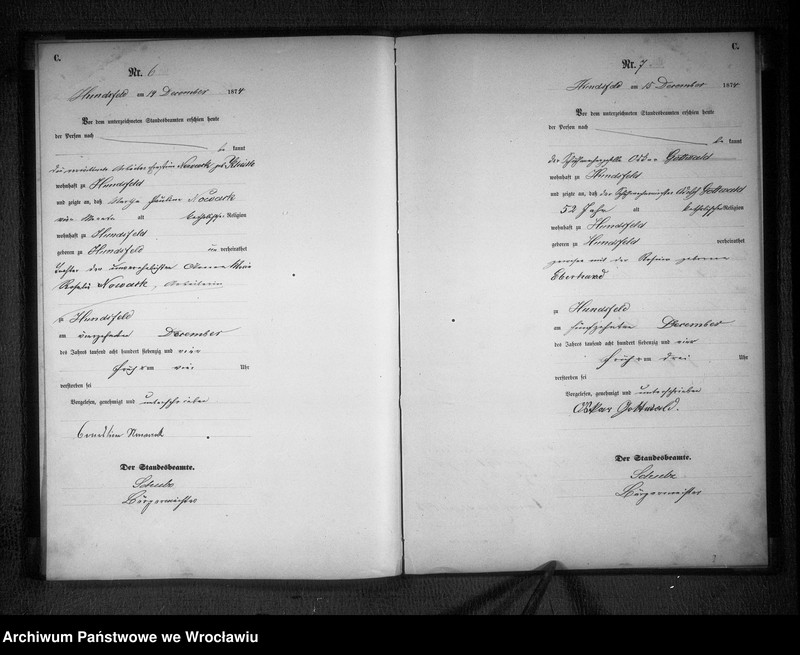 C.
Nr. 6
Hundsfeld am 14 December 1874
Vor dem unterzeichneten Standesbeamten erschien heute
der Person nach
be kannt
die Nowack geb
wohnhaft zu Hundsfeld
und zeigte an, daß Pauline Nowack
vier Monate alt katholischer Religion
wohnhaft zu Hundsfeld
geboren zu Hundsfeld un verheirathet
Tochter der unverehelichten
Rosalie Nowack, Arbeiterin
zu Hundsfeld
am vierzehnten December
des Jahres tausend acht hundert siebenzig und vier
früh um vier Uhr
verstorben sei
Vorgelesen, genehmigt und unterschrieben
Der Standesbeamte.
Bürgermeister
C.
Nr. 7
Hundsfeld am 15 December 1874
Vor dem unterzeichneten Standesbeamten erschien heute
der Person nach
be kannt
der Oskar Gottwald
wohnhaft zu Hundsfeld
und zeigte an, daß der Gottwald
52 Jahr alt katholischer Religion
wohnhaft zu Hundsfeld
geboren zu Hundsfeld verheirathet
gewesen mit der geborene
Eberhard
zu Hundsfeld
am fünfzehnten December
des Jahres tausend acht hundert siebenzig und vier
früh um drei Uhr
verstorben sei
Vorgelesen, genehmigt und unterschrieben
Oskar Gottwald.
Der Standesbeamte.
Bürgermeister
Archiwum Państwowe we Wrocławiu